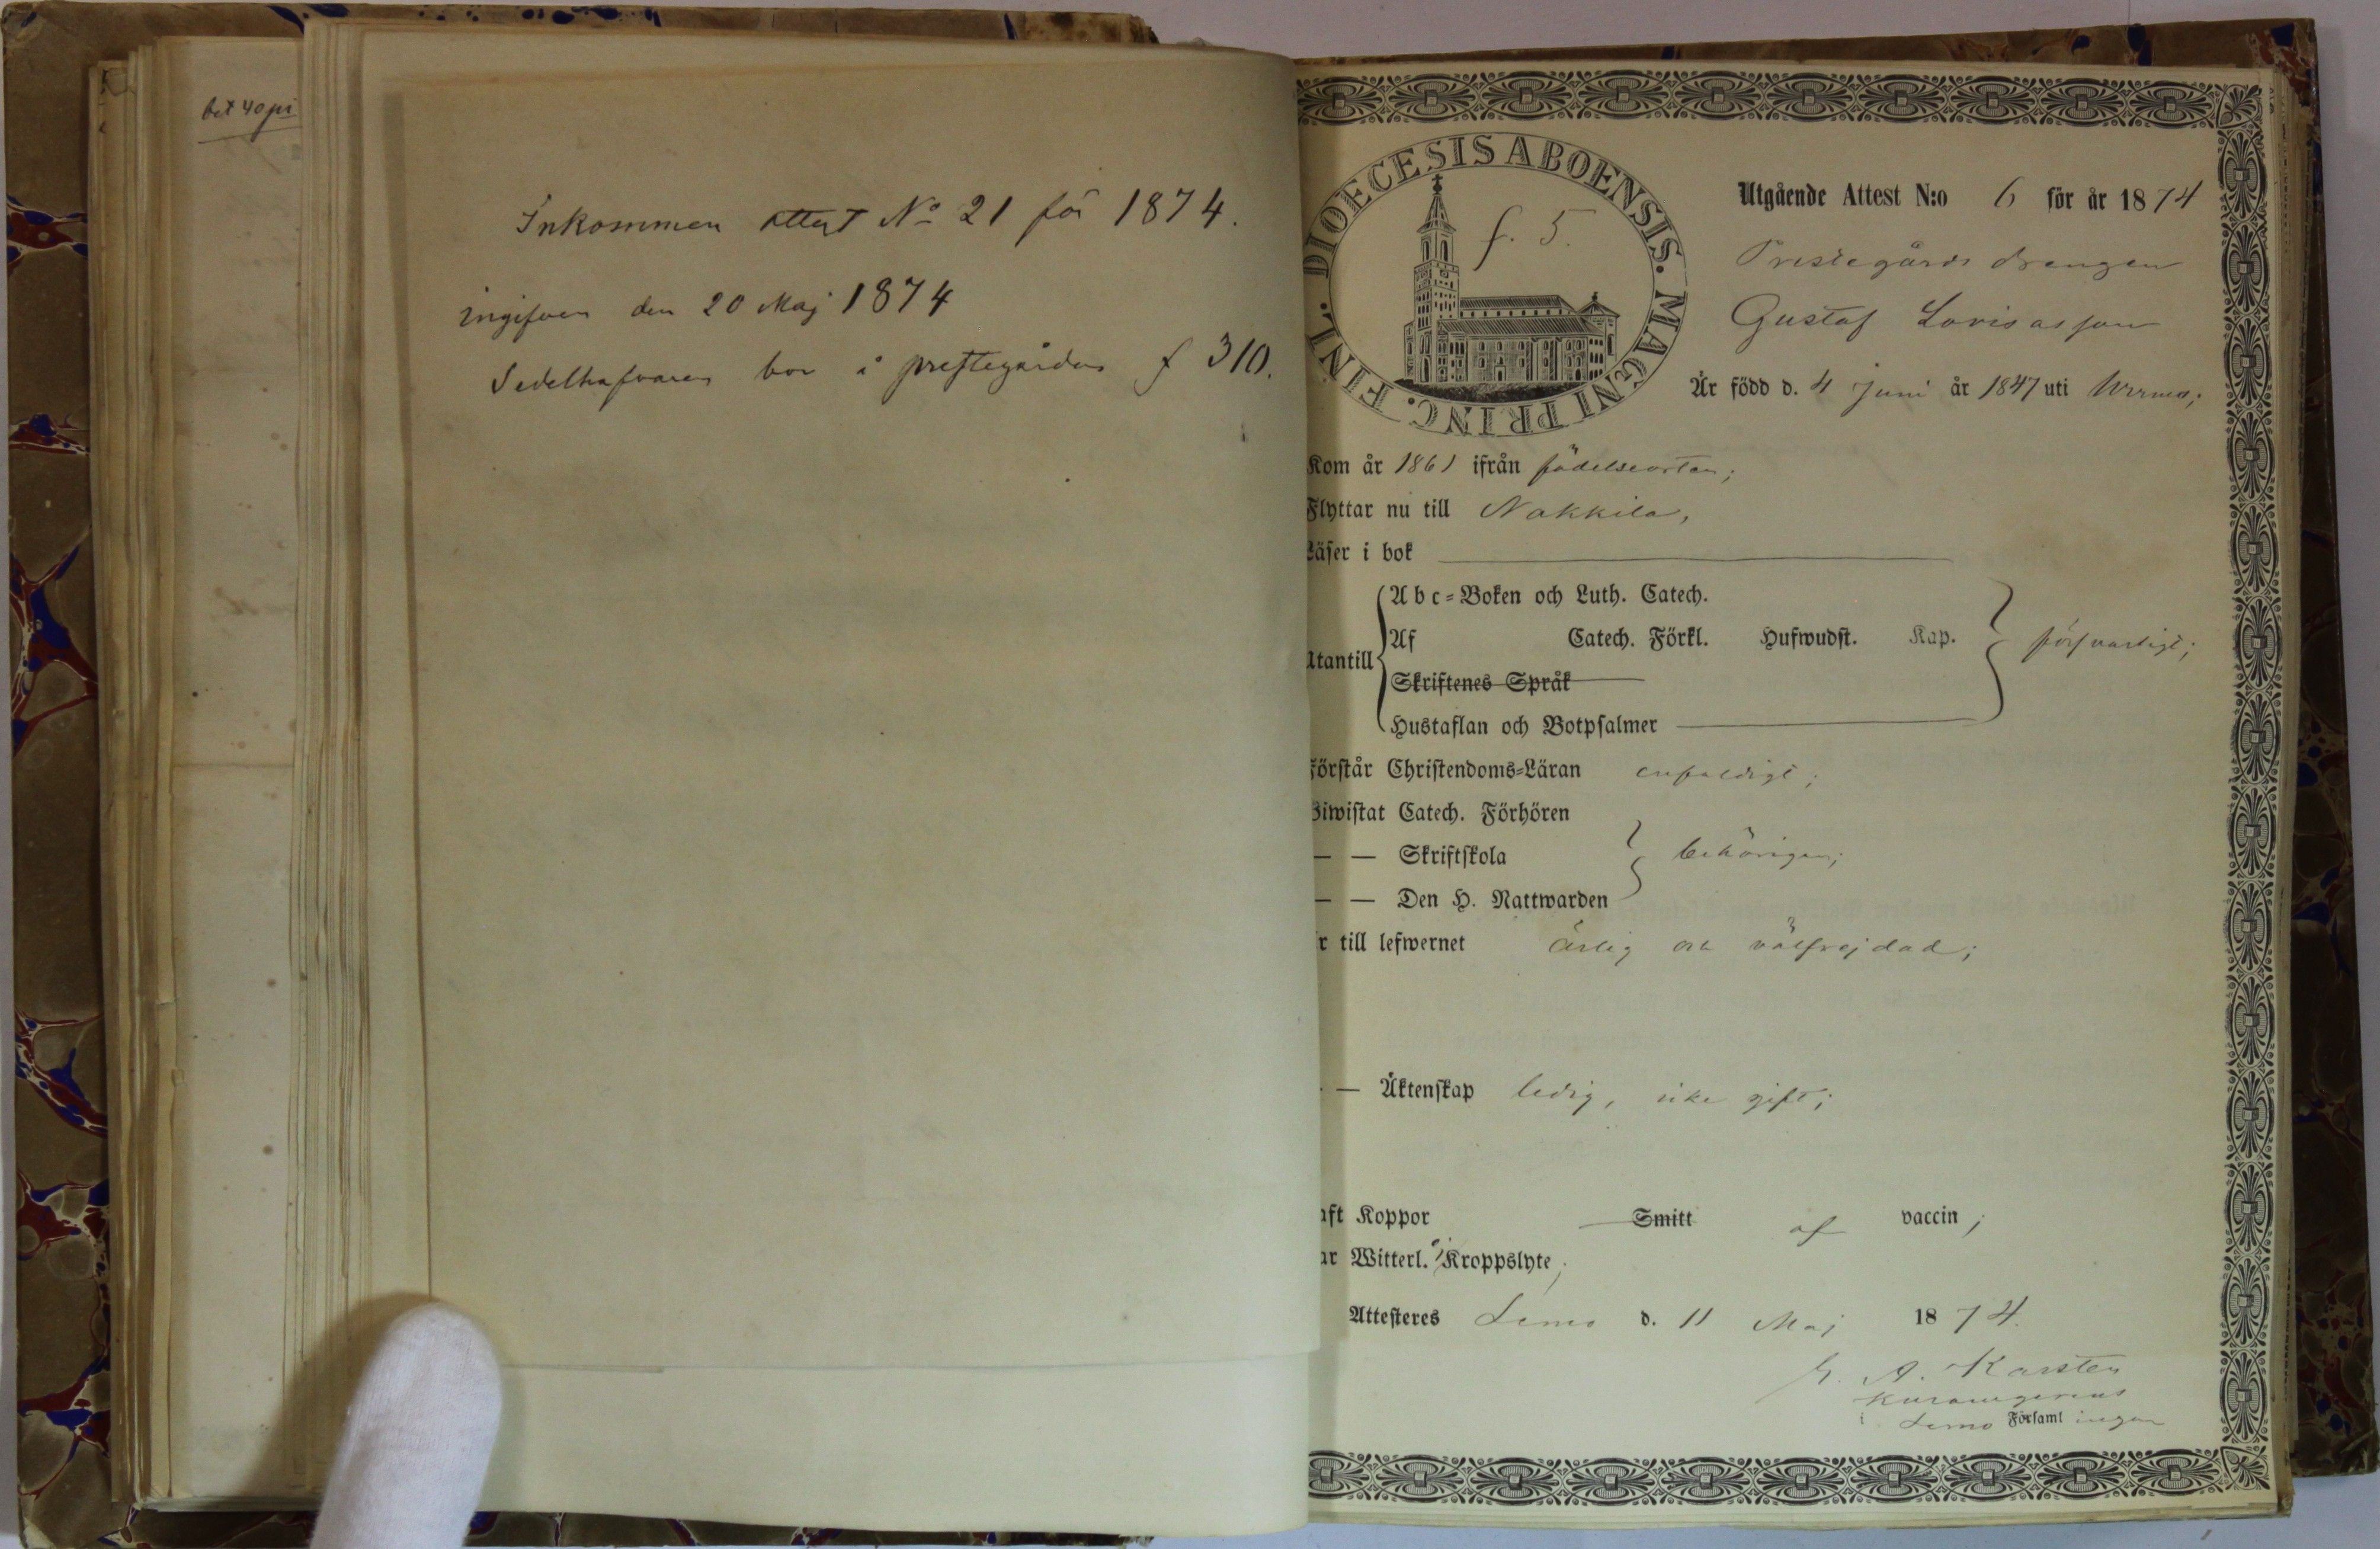 bet 40 pi
Inkommen attest No 21 för 1874.
ingifven den 20 Maj 1874
Sedelhafvaren bor i prestegården f 310.
DIOECESIS ABOENSIS. MAGNI PRINC. FINL.
f. 5.
Utgående Attest N:o 6 för år 1874
Prestegårds drengen
Gustaf Lovisasson
Är född d. 4 Juni år 1847 uti Wirmo;
Kom år 1861 ifrån födelseorten;
Flyttar nu till Nakkila,
Läser i bok
Abc-Boken och Luth. Catech.
Af Catech. Förkl. Hufwudst. Kap. försvarligt;
Utantill
Skriftenes Språk
Hustaflan och Botpsalmer
Förstår Christendoms-Läran enfaldigt;
Biwistat Catech. Förhören
— — Skriftskola behörigen;
— — Den H. Nattwarden
r till lefwernet ärlig och välfrejdad;
— Äktenskap ledig, icke gift;
aft Koppor Smitt af vaccin;
ar Witterl. ej Kroppslyte;
Attesteres Lemo d. 11 Maj 1874.
G. A. Karsten
i Lemo Församlingen